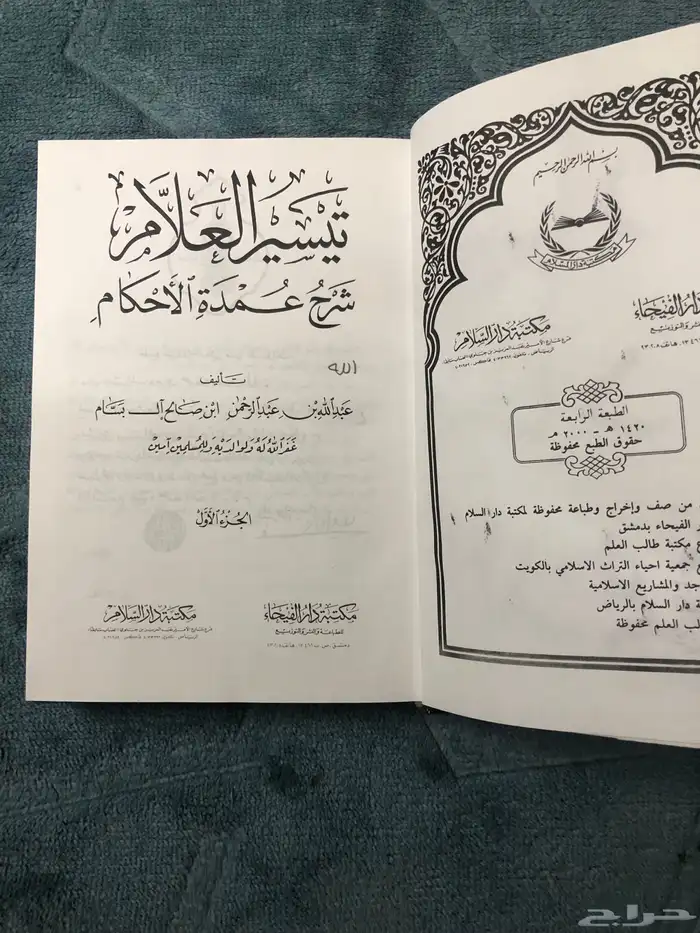 بسم الله الرحمن الرحيم
مكتبة دار السلام
دار الفيحاء
مكتبة دار السلام
الطبعة الرابعة
١٤٢٠ هـ - ٢٠٠٠ م
حقوق الطبع محفوظة
من صف وإخراج وطباعة محفوظة لمكتبة دار السلام
الفيحاء بدمشق
مكتبة طالب العلم
جمعية احياء التراث الاسلامي بالكويت
والمشاريع الاسلامية
دار السلام بالرياض
العلم محفوظة
تيسير العلام
شرح عمدة الأحكام
الله
تأليف
عبد الله بن عبد الرحمن ابن صالح آل بسام
غفر الله له ولوالديه وللمسلمين آمين
الجزء الأول
مكتبة دار الفيحاء
للطباعة والنشر والتوزيع
مكتبة دار السلام
حراج